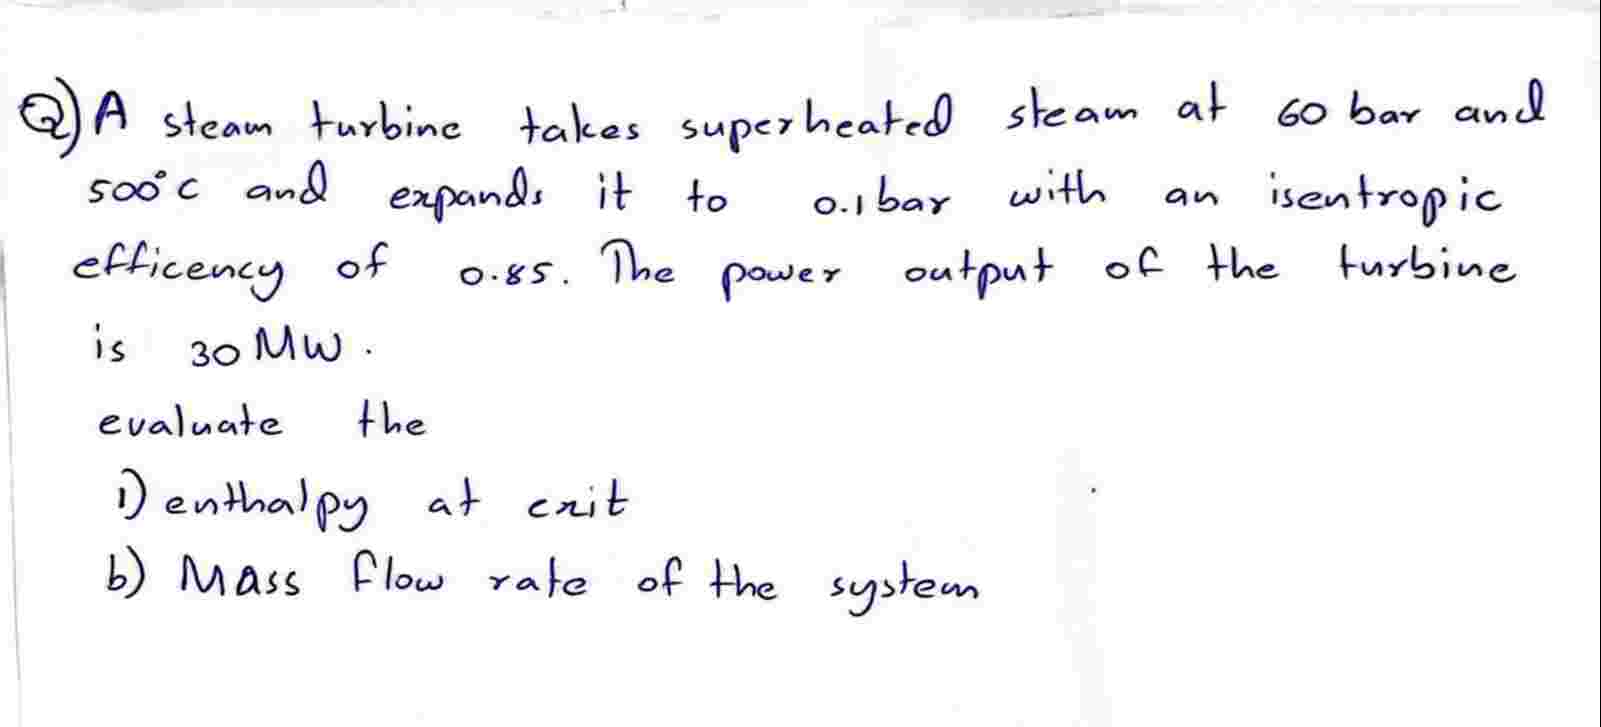 Q) A steam turbine takes superheated steam at 60 bar and
500°C and expands it to 0.1 bar with an isentropic
efficency of 0.85. The power output of the turbine
is 30 MW.
evaluate the
i) enthalpy at exit
b) Mass flow rate of the system